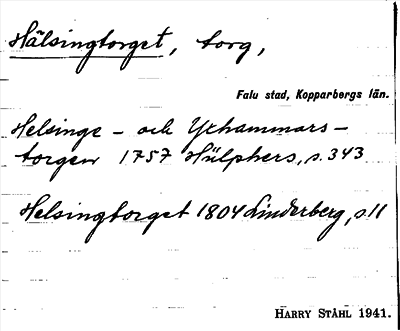 Hälsingtorget, torg,
Falu stad, Kopparbergs län.
Helsinge - och Ythammars-
torgen 1757 Hülphers, s. 343
Helsingtorget 1804 Linderberg, s 11
HARRY STÅHL 1941.